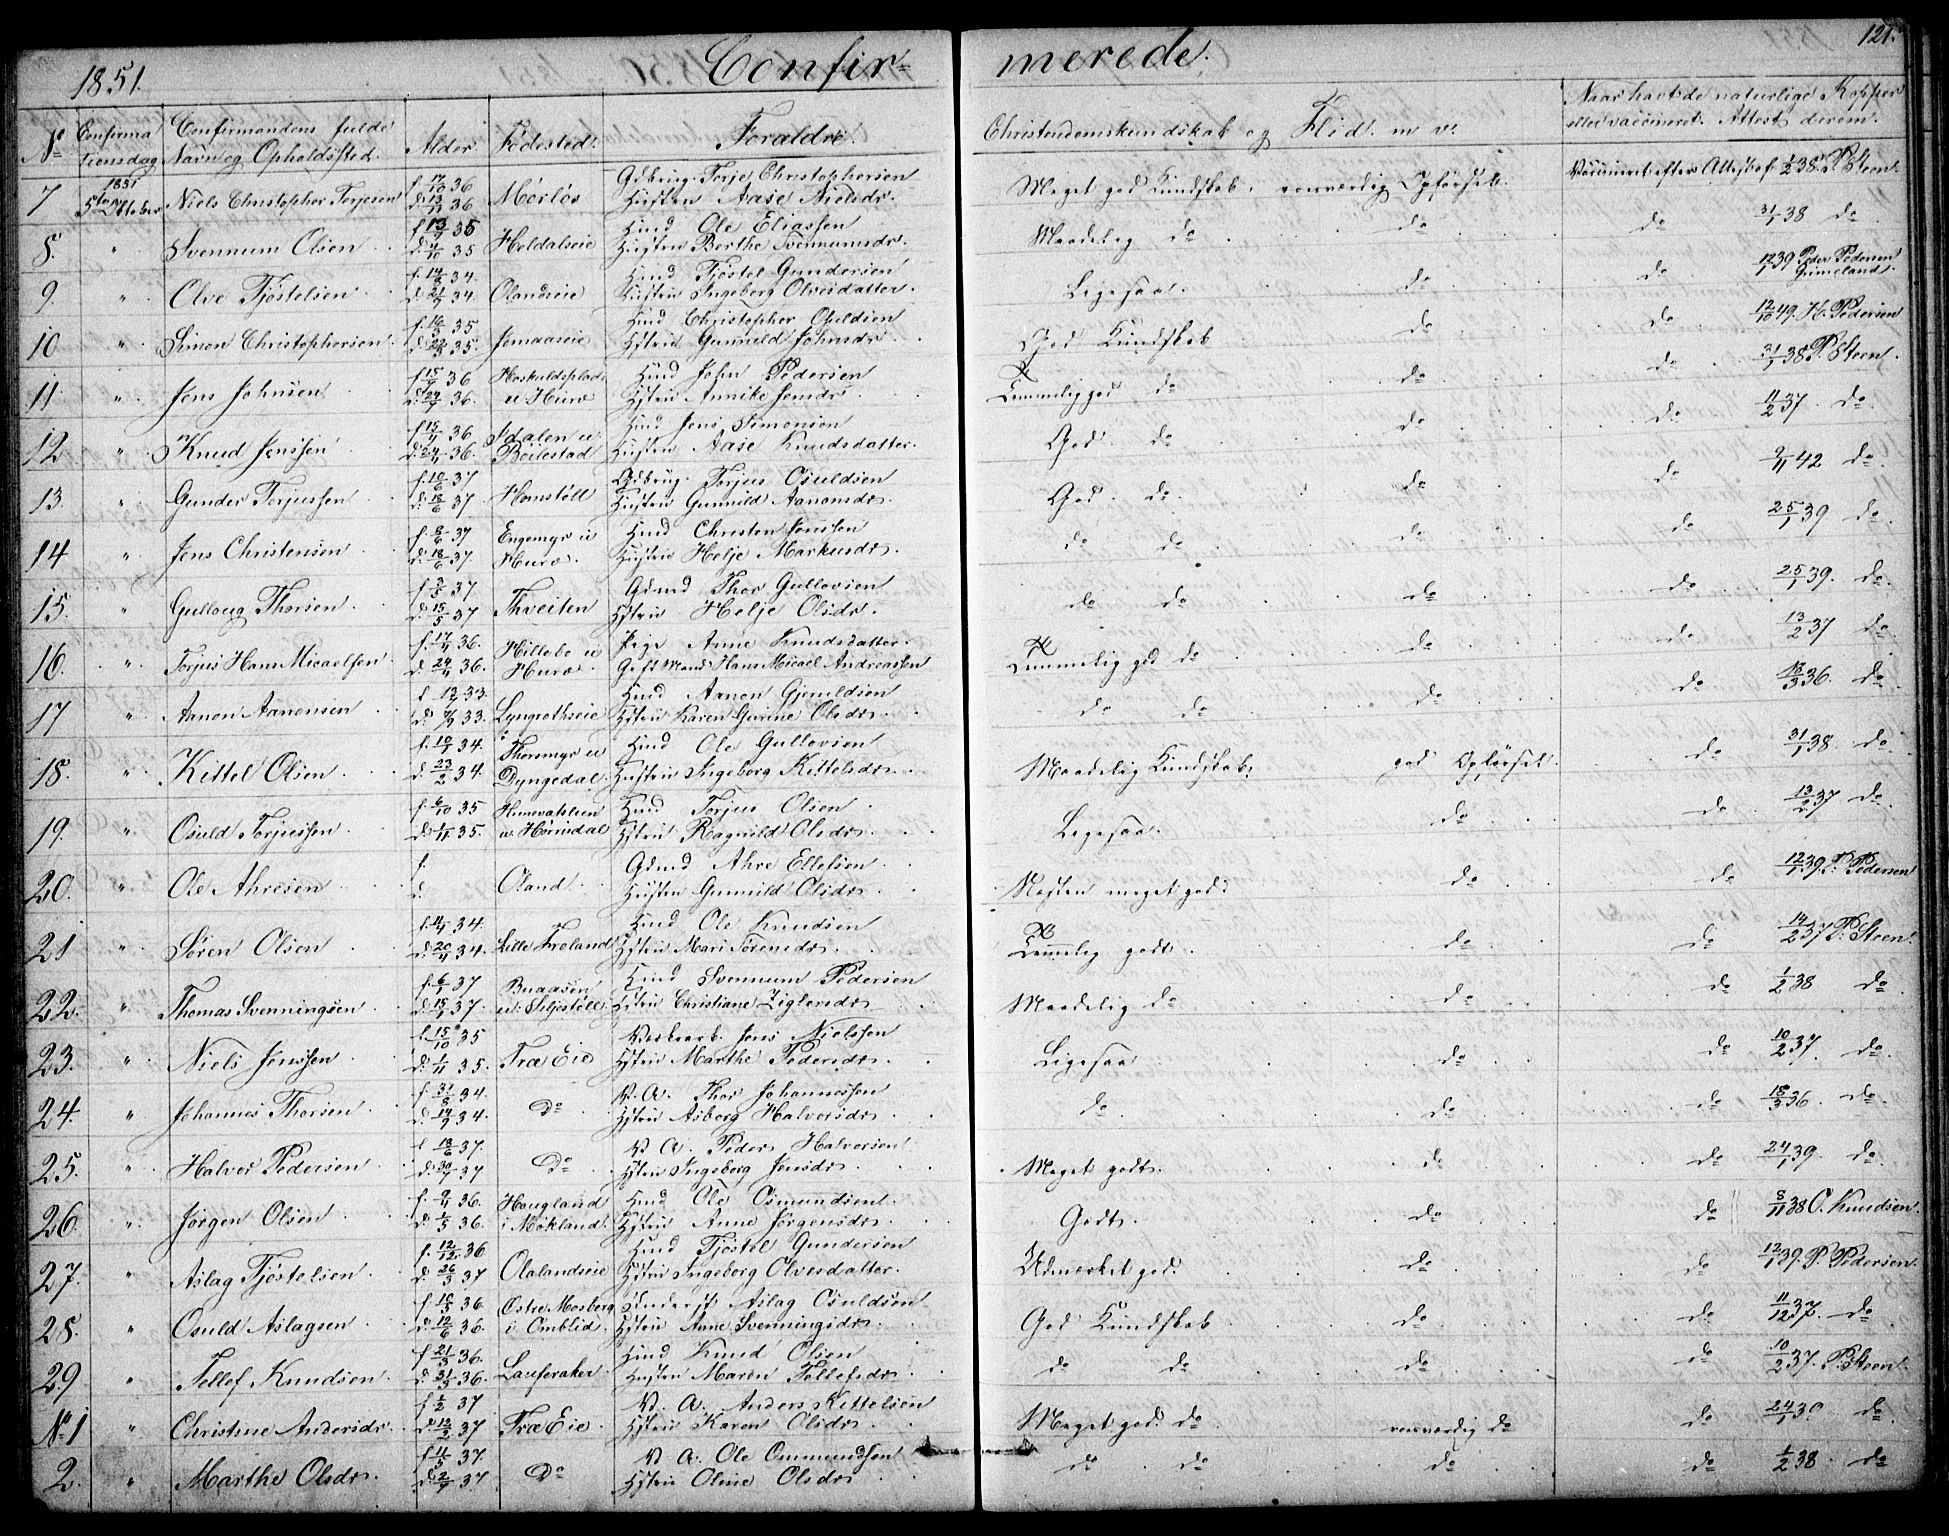 1851. Confir= merede. 121.
No Confirmationsdag Confirmandens fulde Navn og Opholdssted. Alder. Fødested. Forældre. Christendomskundskab og Flid m. v. Naar havt de naturlige Kopper eller vaccineret. Attest derom.
7 1851 5te October Niels Christopher Terjesen f. 17/10 36 d. 13/11 36 Mørløs Gdbrug. Terje Christophersen Hustru Aase Nielsdr. Meget god Kundskab, rosværdig Opførsel. Vaccineret efter Attest af 1/2 38. P. Steen.
8. " Svennum Olsen d. 4/10 35 Heldalseie Huusmd Ole Eliassen Hustru Berthe Svennumsdr. Maadelig do do do 31/1 38 do
9. " Olve Tjøstelsen Olandseie Tjøstel Gundersen Hustru Ingeborg Olvesdatter. Ligesaa. do do 12/1 39 Peder Pedersen Grimeland.
10 " Simon Christophersen f. 16/3 35 d. 22/3 35. Jomaaseie Christopher Osuldsen Hstru Gunnild Johnsdr. God Kundskab do do 12/10 49. H. Pedersen
11. " Jens Johnsen Hoskuldsplads u Hurv John Pedersen Hstru Annike Jensdr. Temmelig god do do do 31/1 38 P. Steen.
12 " Knud Jenssen f. 15/11 36 d. 24/11 36. Idalen u. Bøilestad Jens Simonsen Hustru Aase Knudsdatter. God do do do 11/2 37. do
13. " Gunder Terjussen f. 10/6 37 d. 18/6 37 Homstøll Gdbrug. Terjus Osuldsen Hustru Gunnild Aanonsdr. God. do. do do 9/11 42 do
14 " Jens Christensen f. 8/6 37 d. 18/6 37. Engemyr u Hurv. Christen Jenssen Hustru Helje Markusdr. do do do do 25/1 39 do
15. " Gulloug Thorsen f. 3/5 37 d. 15/5 37 Thveiten Gdmd Thor Gullovsen Hstru Helje Olsdr. do do do do 25/1 39. do
16. " Terjus Hans Micaelsen f. 17/4 36. d. 24/4 36. Hillebo u Hurv Pige Anne Knudsdatter. Gift Mand Hans Micael Andreassen Temmelig god do do do 13/2 37 do
17 " Aanon Aanonsen Lyngrothseie Aanon Gjeruldsen Hstru Karen Gurine Olsdr. do do do do 18/3 36. do
18. " Kittel Olsen d. 23/2 34. Thoremyr u Dyngedal. Ole Gullovsen Hustru Ingeborg Kittelsdr. Maadelig Kundskab, god Opførsel. do 31/1 38. do
19. " Osuld Terjussen f. 6/10 35 d. 1/11 35. u. Hørnidal Terjus Olsen Hstru Ragnild Olsdr. Ligesaa. do do 13/2 37 do
20. " Ole Ahresen f. d. Oland. Gdmd Ahre Ellefsen Hustru Gunnild Olsdr. Næsten meget god. do do 12/1 39. P. Pedersen
21 " Søren Olsen f. 14/4 34. d. 20/4 34. Lille Froland Ole Knudsen Hstru Mari Sørensdr. Temmelig godt. do do 14/2 37 P. Steen.
22. " Thomas Svenningsen f. 6/1 37 d. 15/1 37. Buaasen u. Seljestøll Svennum Pedersen Hstru Christiane Ziglersdr. Maadelig do do do 1/2 38 do
23. " Niels Jenssen f. 15/10 35 d. 1/11 35. Træ Eie Jens Nielssen Hstru Marthe Pedersdr. Ligesaa do do 10/2 37. do
24. " Johannes Thorsen f. 31/8 34. Do V. A. Thor Johannessen Hstru Asborg Halvorsdr. do do do 18/3 36. do
25. " Halvor Pedersen f. 18/6 37. d. 30/7 37 Do V. A. Peder Halvorsen Hstru Ingeborg Jensdr. Meget godt. do do 24/1 39. do
26. " Jørgen Olsen f. 9/4 36. d. 1/5 36. Hougland i Møkland. Ole Osmundsen Hstru Anne Jørgensdr. Godt. do do 8/11 38 O. Knudsen.
27. " Aslag Tjøstelsen f. 12/12 36 d. 26/3 37 Olalandseie Tjøstel Gundersen Hstru Ingeborg Olvesdatter. Udmærket god. do do 12/1 39. P. Pedersen.
28. " Osuld Aslagsen f. 16/5 36. d. 12/6 36. Østre Mosberg i Omblid. Aslag Osuldsen Hstru Anne Svenningsdr. God Kundskab do do 11/12 37. do
29. " Tellef Knudsen f. 21/3 36. d. 31/3 36. Lauveraker Knud Olsen Hustru Maren Tellefsdr. do do do do 10/2 37. P. Steen.
No 1 " Christine Andersdr. f. 1/2 37 d. 12/2 37 Træ Eie. V. A. Anders Kittelsen Hstru Karen Olsdr. Meget god do rosværdig do do do
2. " Marthe Olsdr. f. 11/5 37. Do V. A. Ole Ommundsen Hstru Oline Olsdr. do do do do 1/2 38. do